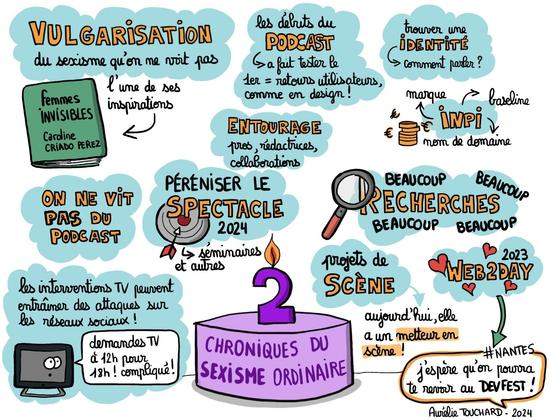 VULGARISATION
du sexisme qu'on ne voit pas
femmes
INVISIBLES
Caroline
CRIADO PEREZ
l'une de ses
inspirations
les débuts du
PODCAST
a fait tester le
1er = retours utilisateurs,
comme en design !
trouver une
iDENTITÉ
comment parler ?
marque
baseline
INPI
nom de domaine
€
€
ENTOURAGE
pros, rédactrices,
collaborations
ON NE VIT
PAS DU
PODCAST
PÉRÉNISER LE
SPECTACLE
2024
séminaires
et autres
BEAUCOUP
BEAUCOUP
RECHERCHES
BEAUCOUP
BEAUCOUP
les interventions TV peuvent
entraîner des attaques sur
les réseaux sociaux !
demandes TV
à 12h pour
18h ! compliqué !
2
CHRONIQUES DU
SEXISME ORDINAIRE
projets de
SCÈNE
aujourd'hui, elle
a un metteur en
scène !
2023
WEB2DAY
#NANTES
j'espère qu'on pourra
te revoir au DEVFEST !
Aurélie TOUCHARD - 2024